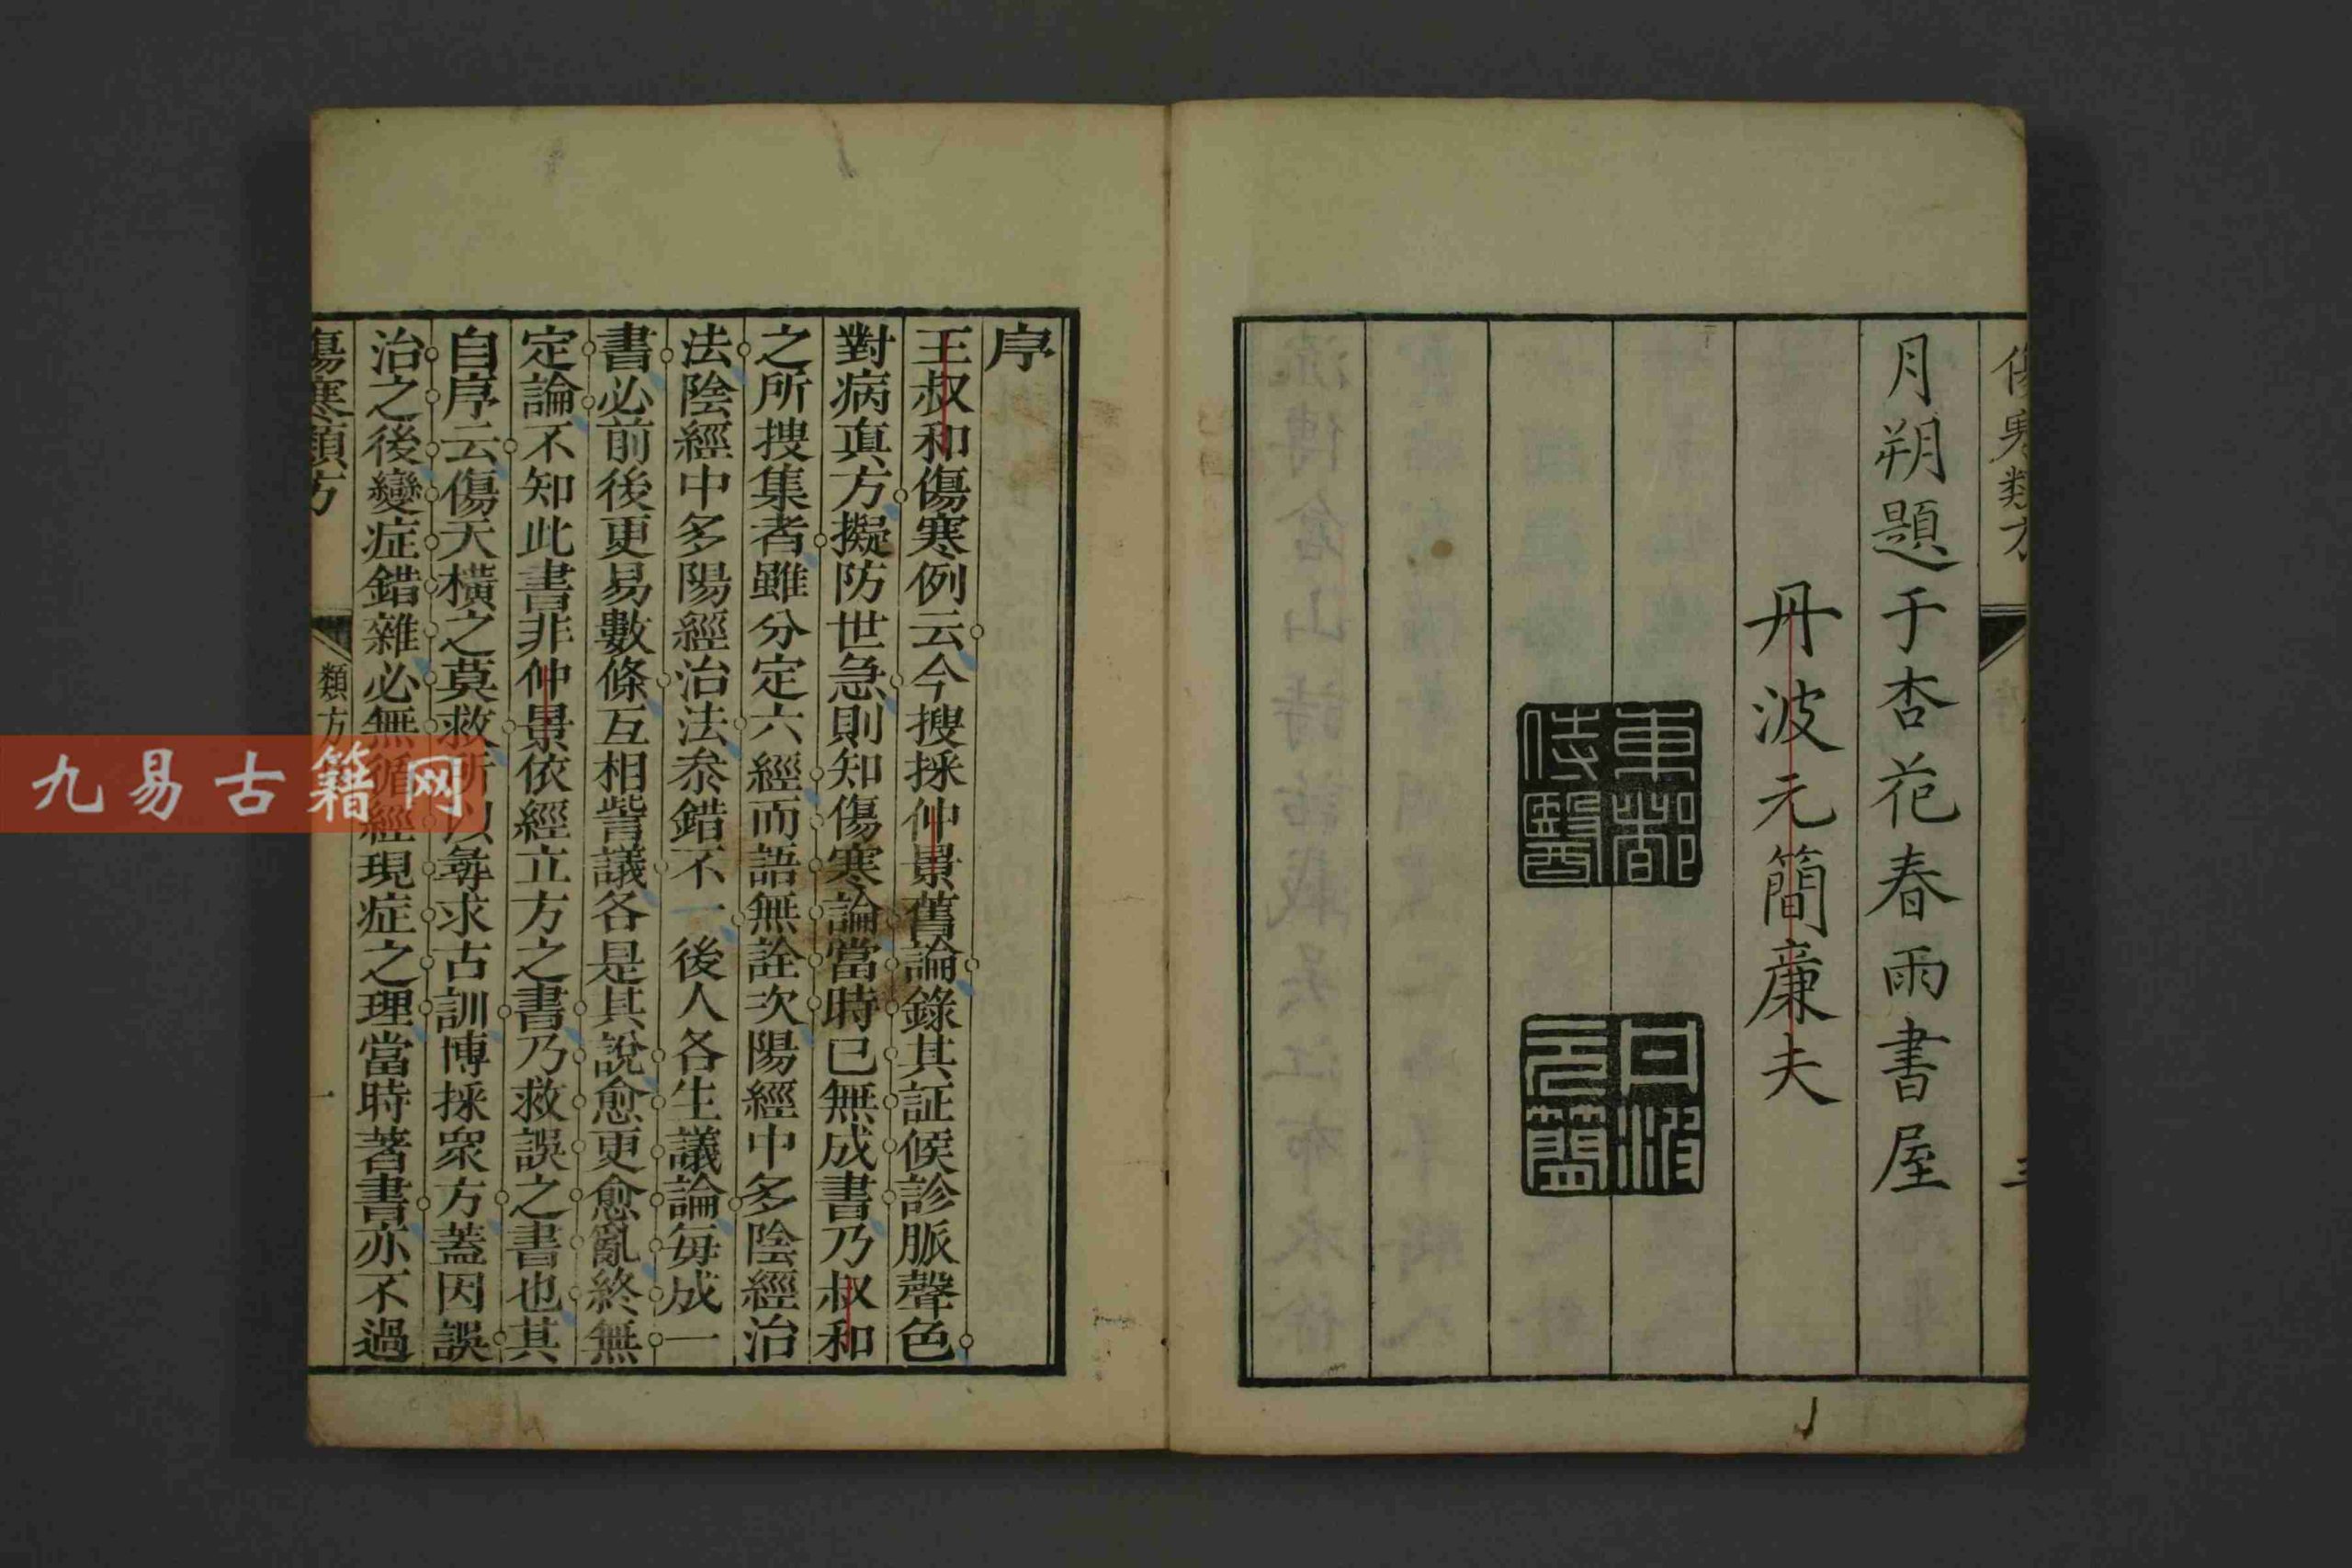 傷寒類方
月朔題于杏花春雨書屋
丹波元簡廉夫
東都
侍醫
丹波
元簡
序
王叔和傷寒例云今搜採仲景舊論錄其証候診脈聲色
對病真方擬防世急則知傷寒論當時已無成書乃叔和
之所搜集者雖分定六經而語無詮次陽經中多陰經治
法陰經中多陽經治法叅錯不一後人各生議論每成一
書必前後更易數條互相訾議各是其說愈更愈亂終無
定論不知此書非仲景依經立方之書乃救誤之書也其
自序云傷夭橫之莫救所以尋求古訓博採衆方蓋因誤
治之後變症錯雜必無循經現症之理當時著書亦不過
傷寒類方
類方
一
九易古籍网